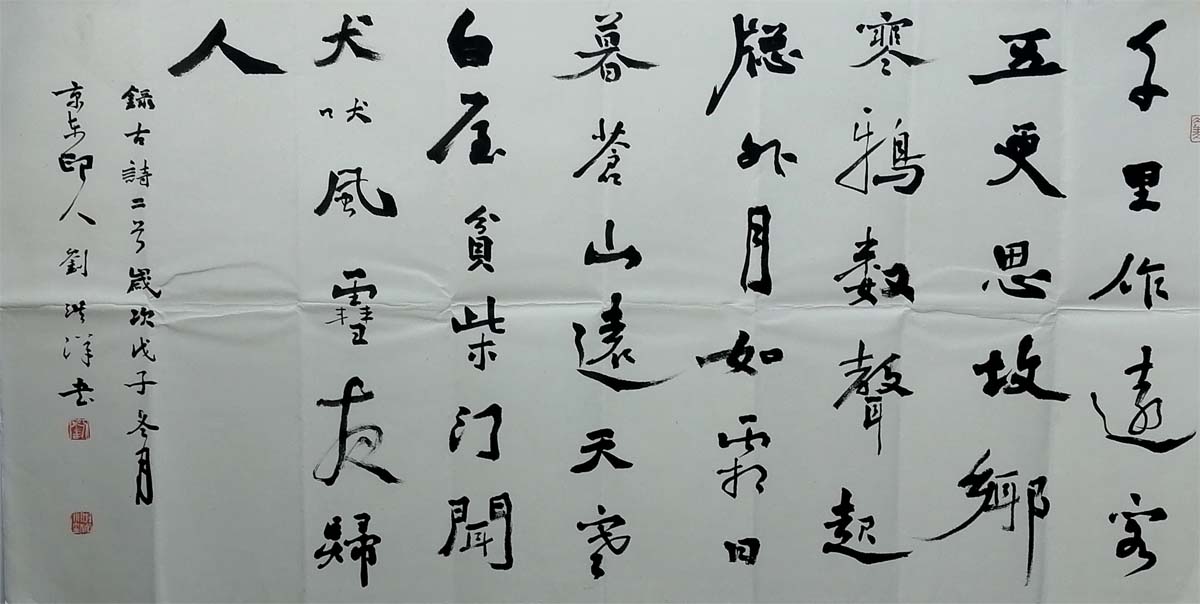 千里作遠客
五更思故鄉
寒鴉數聲起
窗外月如霜日
暮蒼山遠天寒
白屋貧柴門聞
犬吠風雪夜歸
人
錄古詩二首歲次戊子冬月
京東印人劉洪洋書